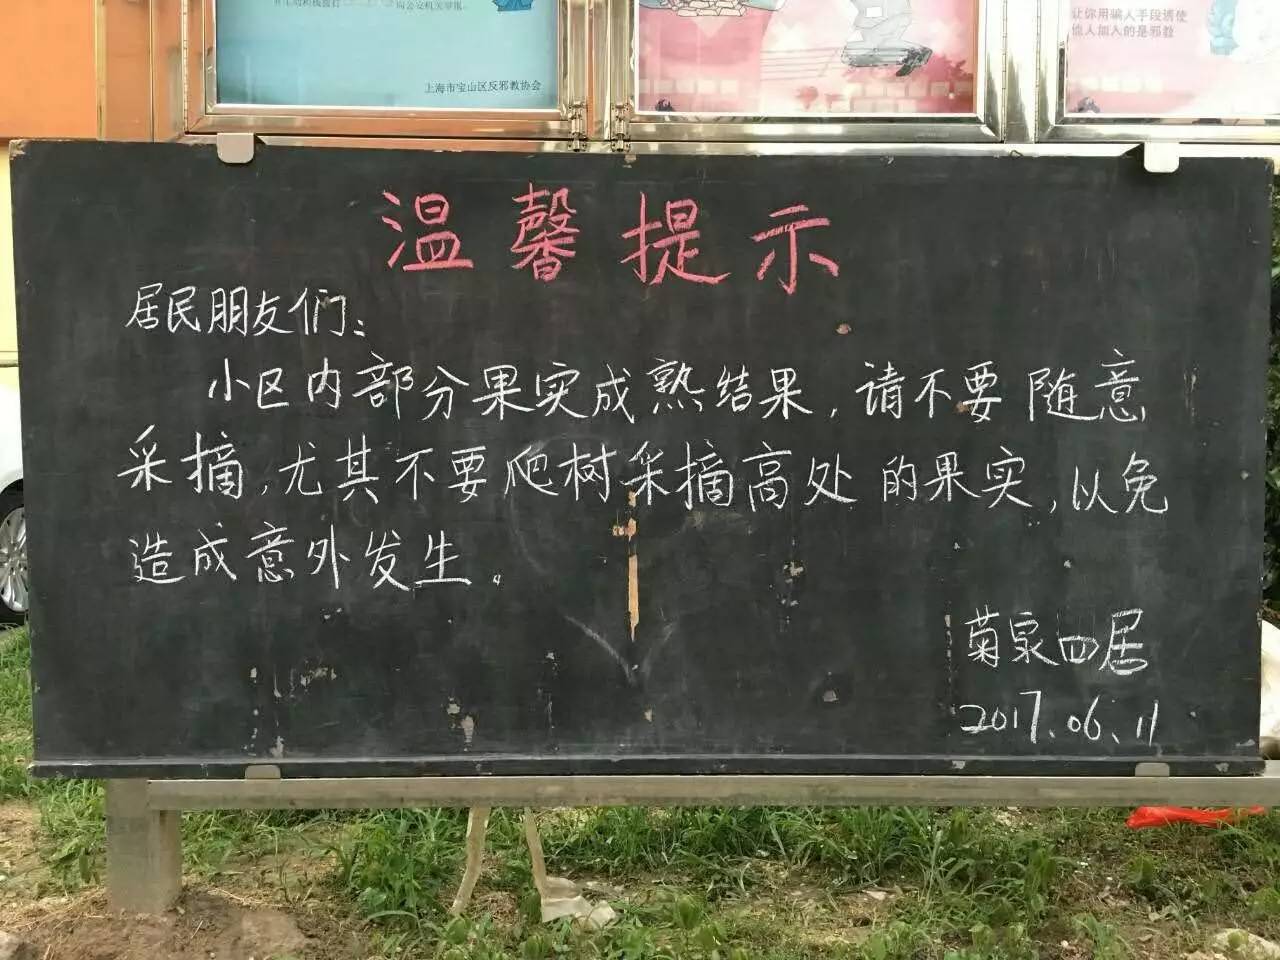 向公安机关举报。
上海市宝山区反邪教协会
让你用骗人手段诱使
他人加入的是邪教
温馨提示
居民朋友们：
小区内部分果实成熟结果，请不要随意
采摘，尤其不要爬树采摘高处的果实，以免
造成意外发生。
菊泉四居
2017.06.11